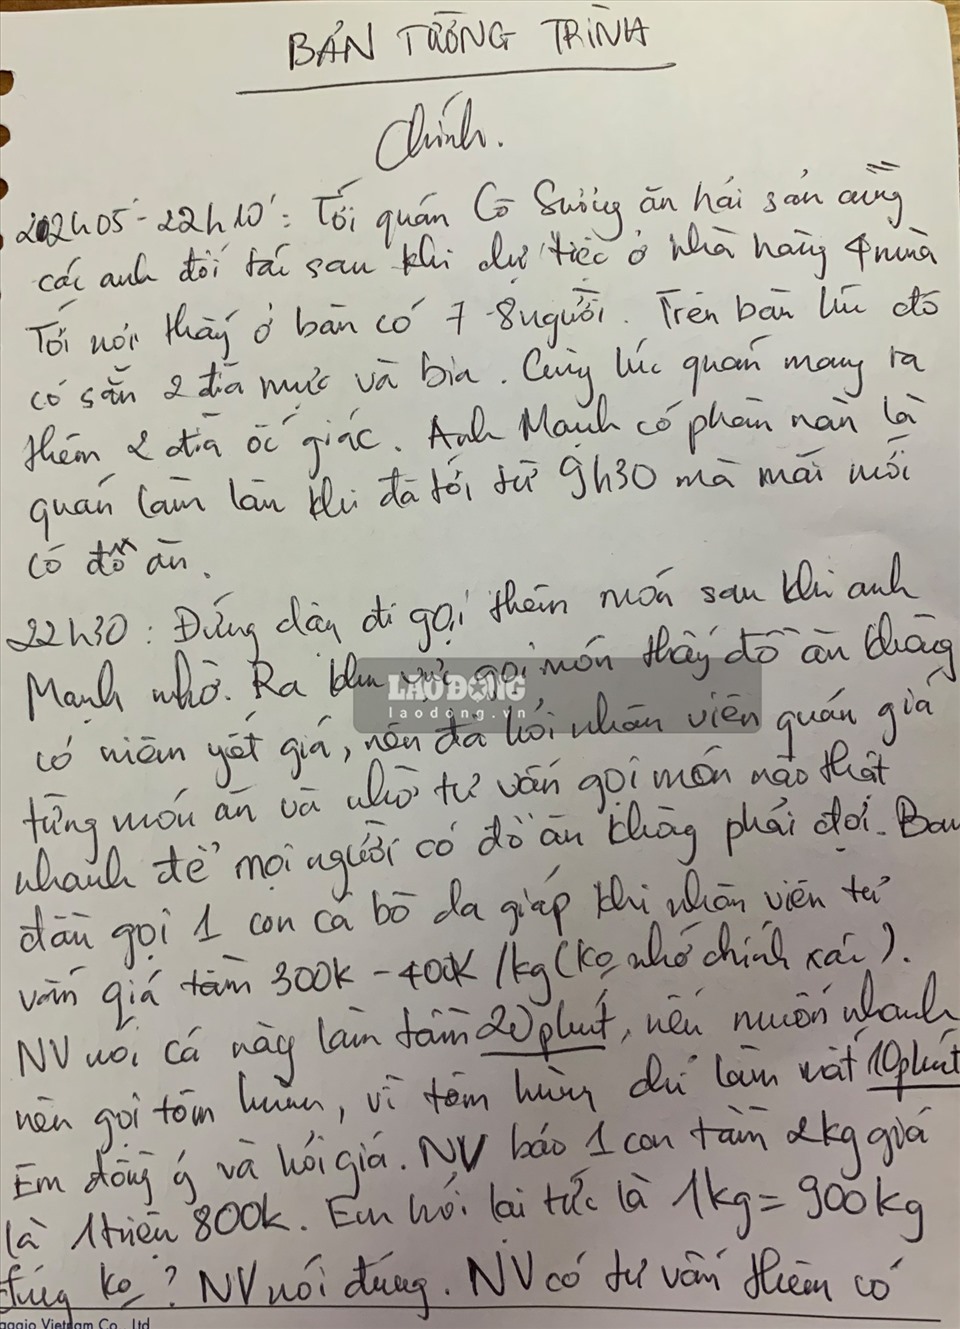 BẢN TƯỜNG TRÌNH
Chính.
22h05' - 22h10': Tới quán Cô Sương ăn hải sản cùng
các anh đối tác sau khi dự tiệc ở nhà hàng 4 mùa
Tới nơi thấy ở bàn có 7-8 người. Trên bàn lúc đó
có sẵn 2 đĩa mực và bia. Cùng lúc quán mang ra
thêm 2 đĩa ốc giác. Anh Mạnh có phàn nàn là
quán làm lâu khi đã tới từ 9h30 mà mãi mới
có đồ ăn.
22h30: Đứng dậy đi gọi thêm món sau khi anh
Mạnh nhờ. Ra khu vực gọi món thấy đồ ăn không
LAO ĐỘNG
laodong.vn
có niêm yết giá, nên đã hỏi nhân viên quán giá
từng món ăn và nhờ tư vấn gọi món nào thật
nhanh để mọi người có đồ ăn không phải đợi. Ban
đầu gọi 1 con cá bò da giáp khi nhân viên tư
vấn giá tầm 300k - 400k/kg (ko nhớ chính xác).
NV nói cá này làm tầm 20 phút, nếu muốn nhanh
nên gọi tôm hùm, vì tôm hùm chỉ làm mất 10 phút
Em đồng ý và hỏi giá. NV báo 1 con tầm 2kg giá
là 1 triệu 800k. Em hỏi lại tức là 1kg = 900kg
đúng ko? NV nói đúng. NV có tư vấn thêm có
aggio Vietnam Co., Ltd